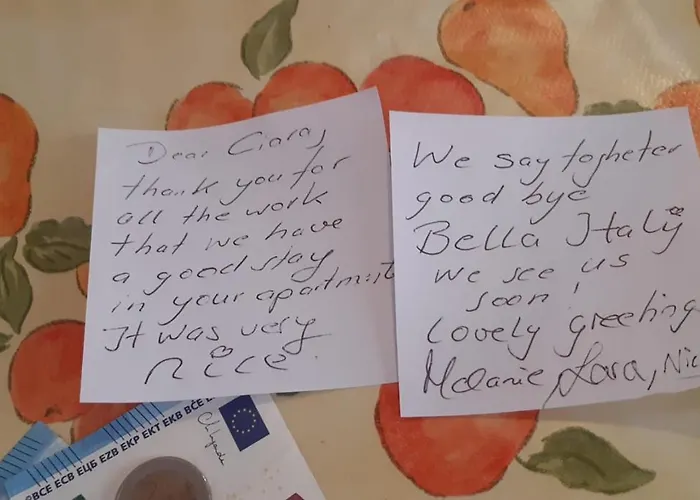 Dear Ciara,
thank you for
all the work
that we have
a good stay
in your apartment
It was very
nice.
We say togheter
good bye
Bella Italy
we see us
soon!
lovely greeting
Melanie, Lara, Nic
BCE ECB ЕЦБ EZB EKP EKT EKB BĊE